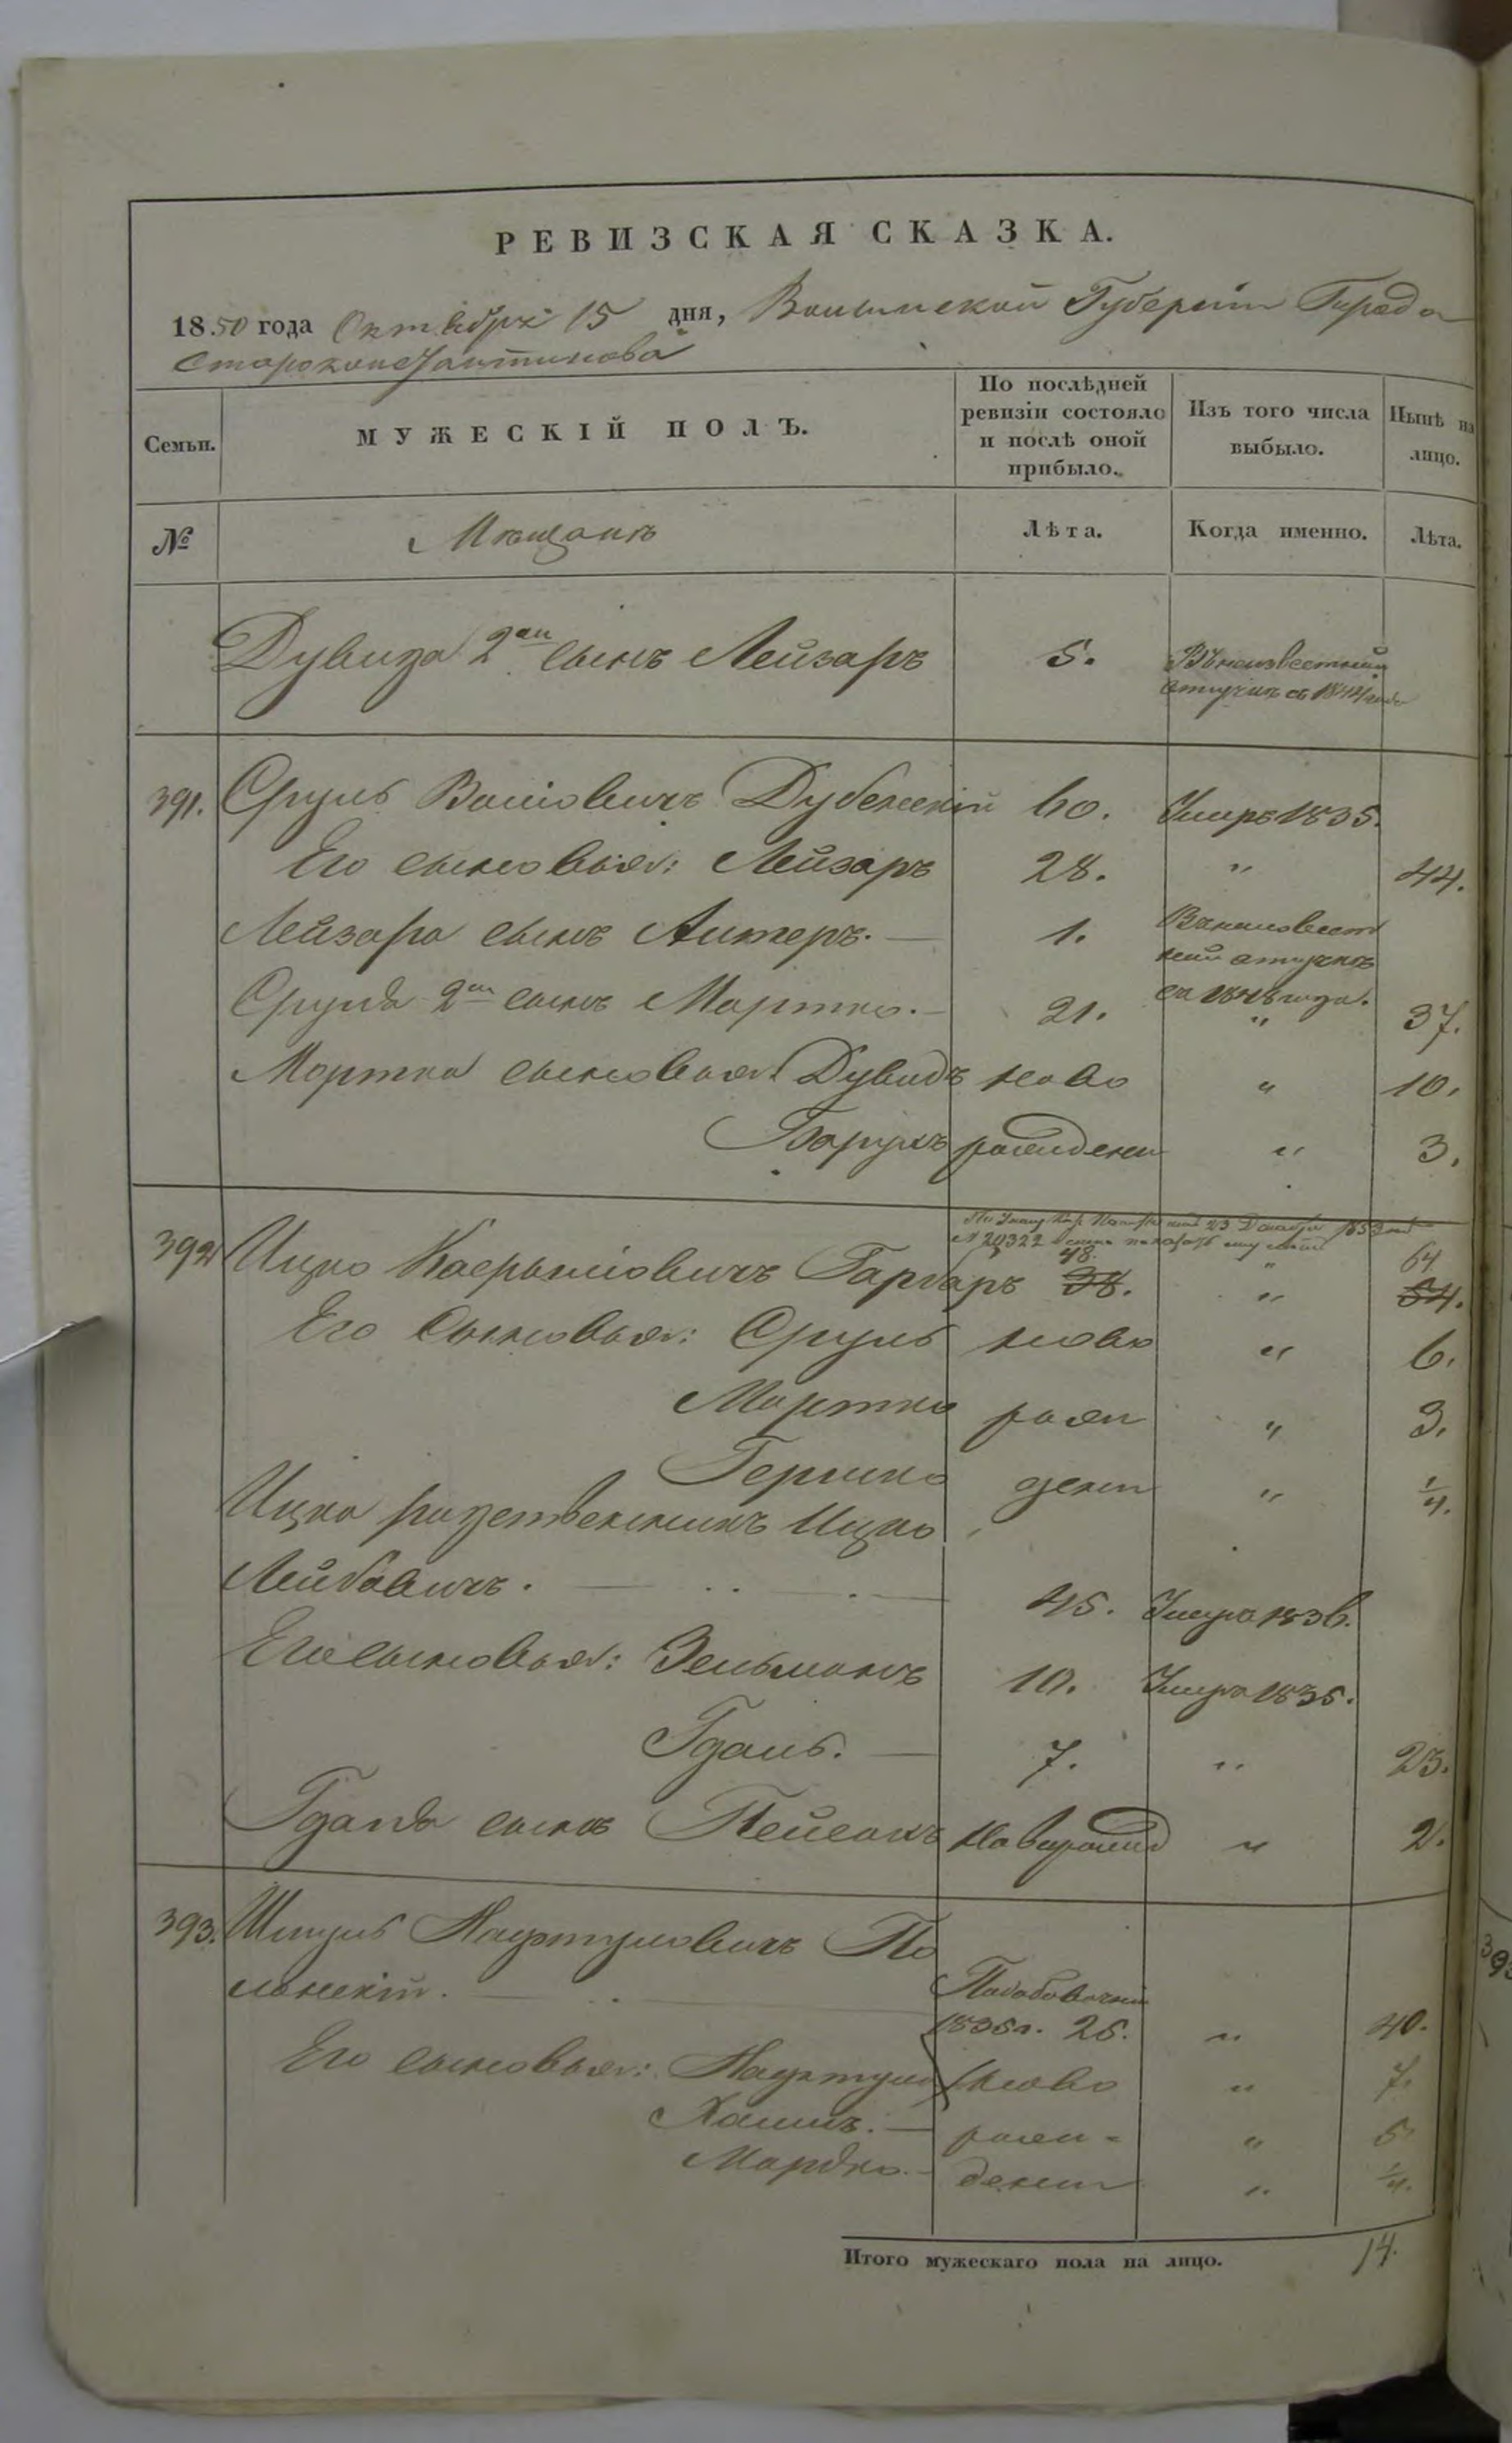 РЕВИЗСКАЯ СКАЗКА.
1850 года Октября 15 дня, Волынской Губернiи Города
Староконстантинова
Семьи. МУЖЕСКІЙ ПОЛЪ. По послѣдней ревизіи состояло и послѣ оной прибыло. Изъ того числа выбыло. Нынѣ на лицо.
№ Мѣщанъ Лѣта. Когда именно. Лѣта.
Дувида 2ой сынъ Лейзаръ 5. Въ неизвестной
отлучкѣ съ 1844 года
391. Сруль Волiовичъ Дубенскiй 60. Умеръ 1835.
Его сыновья: Лейзаръ 28. " 44.
Лейзара сынъ Алтеръ. — 1. Въ неизвест
ной отлучкѣ
съ 1848 года.
Сруля 2ой сынъ Мортко. — 21. " 37.
Мортка сыновья: Дувидъ ново " 10.
Борухъ рождени " 3.
23 Декабря 1853
№ 20322
392 Ицко Гарбаръ 48. " 64
38. " 54.
Его сыновья: Сруль ново " 6.
Мортко рож " 3.
Гершко дени " 1/4.
Ицка родственникъ Ицко
Лейбовичъ. — 45. Умеръ 1836.
Его сыновья: Зельманъ 10. Умеръ 1835.
Гдаль. — 7. " 23.
Гдаля сынъ Пейсахъ новорожд " 2.
393. Шмуль Нафтуловичъ По
льнскiй. —
1835 г. 25. " 40.
Его сыновья: Нафтула ново " 7.
Хаимъ. — рож- " 5.
Мордко. — дени " 1/4.
Итого мужескаго пола на лицо. 14.